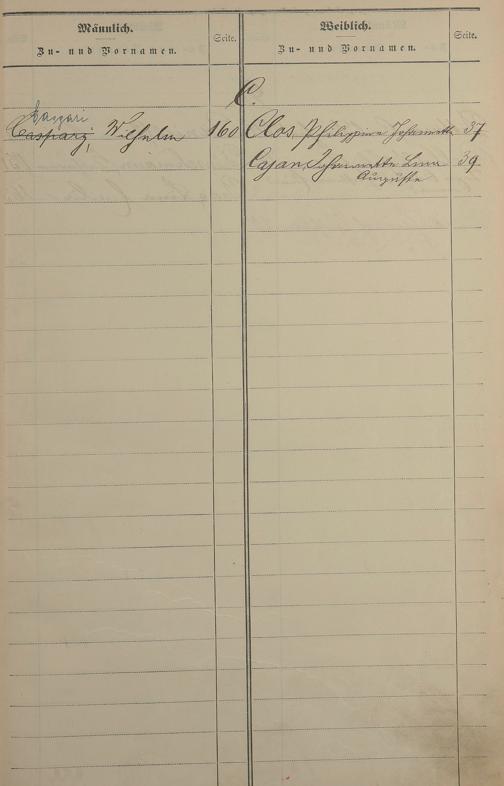 Männlich.
Zu- und Vornamen.
Seite.
Weiblich.
Zu- und Vornamen.
Seite.
C.
Caspari
Casparj, Wilhelm 160
Clos Philippine Johannette 37
Cajan, Johannette Lina 39
Auguste